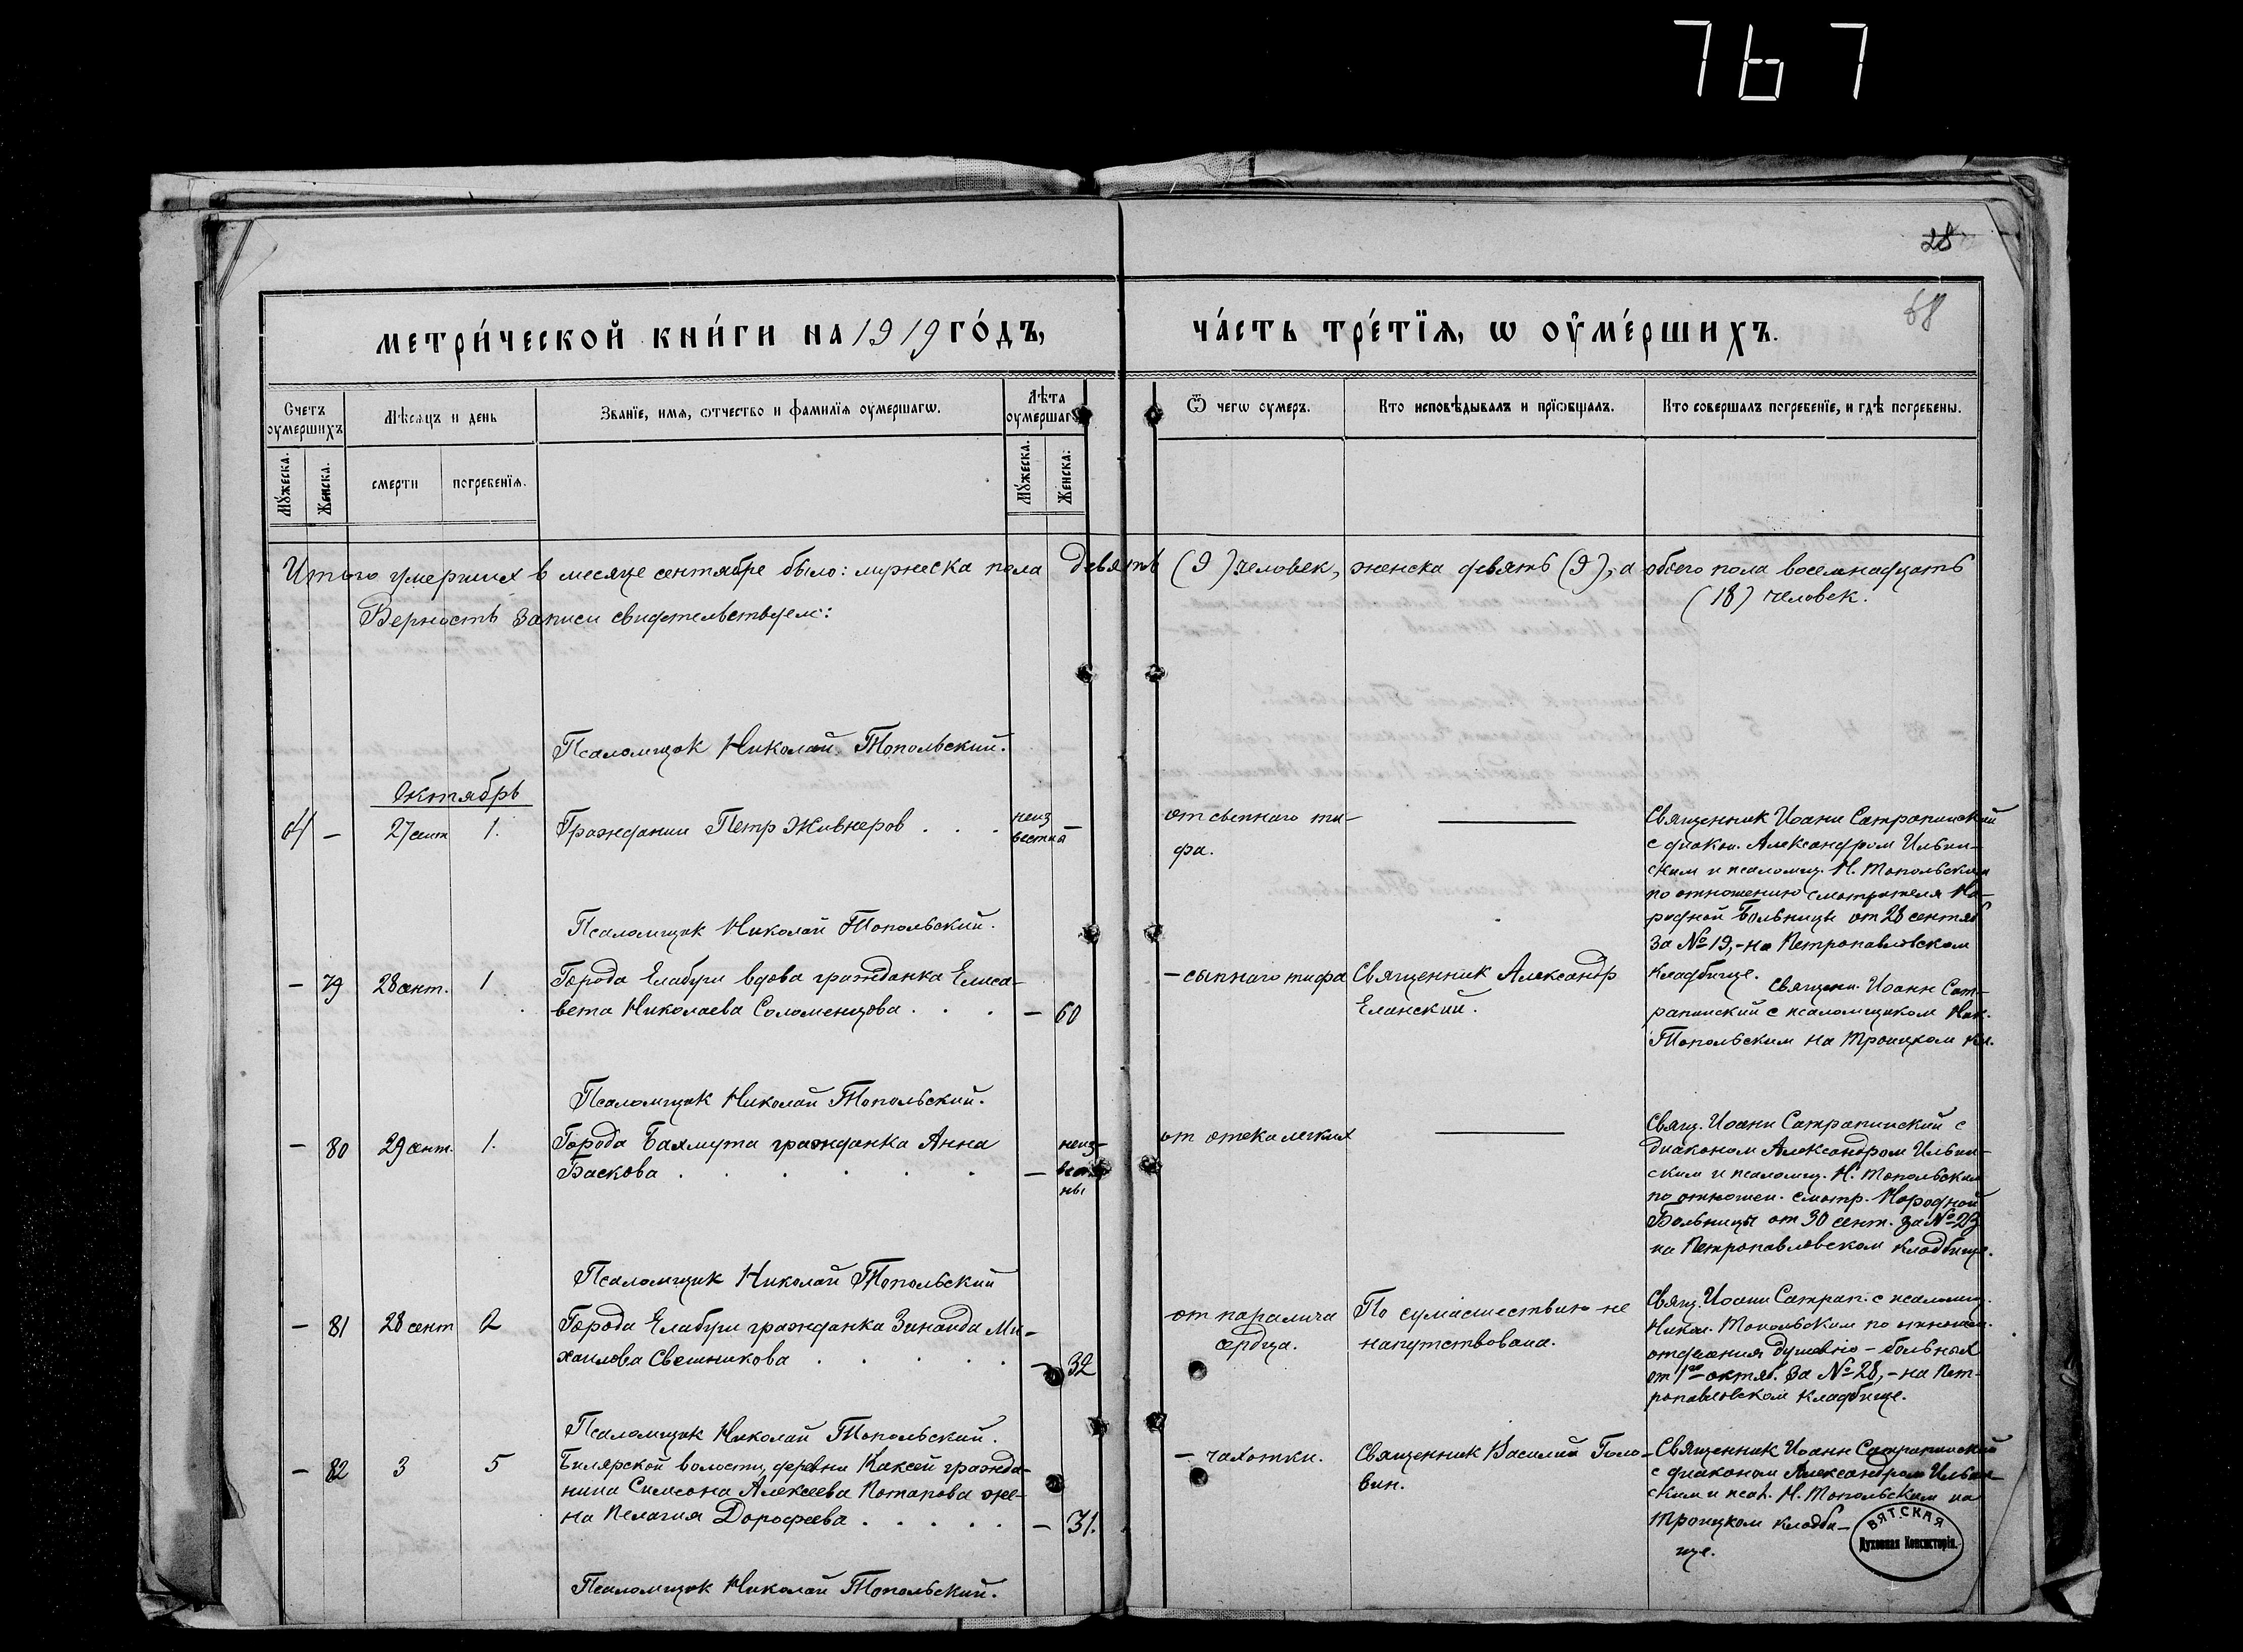 767
28
68
МЕТРИ́ЧЕСКОЙ КНИ́ГИ НА 1919 ГО́ДЪ,
ЧА́СТЬ ТРЕ́ТЇѦ, Ѡ ОУ҆МЕ́РШИХЪ.
Счетъ оумершихъ
Мѣсѧцъ и день
Званїе, имѧ, ѻтчество и фамилїѧ оумершагѡ.
Лѣта оумершагѡ
Ѿ чегѡ оумеръ.
Кто исповѣдывалъ и прїѡбщалъ.
Кто совершалъ погребенїе, и гдѣ погребены.
Мужеска.
Женска.
смерти
погребенїѧ.
Мужеска.
Женска.
Итого умерших в месяце сентябре было: мужеска пола девять (9) человек, женска девять (9), а обоего пола восемнадцать
(18) человек.
Верность записи свидетельствуем:
Псаломщик Николай Топольский.
Октябрь
— 27 сент 1. Гражданин Петр Живнеров . . . неиз
вестна —
от сыпнаго ти-
фа.
Священник Иоанн Сатрапинский
с диакон. Александром Ильин-
ским и псаломщ. Н. Топольским
по отношению смотрителя На-
родной Больницы от 28 сентяб
за № 19,- на Петропавловском
кладбище.
Псаломщик Николай Топольский.
— 79 28 сент. 1 Города Елабуги вдова гражданка Елиса-
вета Николаева Соломенцова . . . — 60
— сыпнаго тифа
Священник Александр
Еланский.
Священ. Иоанн Сат-
рапинский с псаломщиком Ник.
Топольским на Троицком кл.
Псаломщик Николай Топольский.
— 80 29 сент. 1. Города Бахмута гражданка Анна
Баскова . . . . . . — неиз-
вест-
ны
от отека легких
Свящ. Иоанн Сатрапинский с
диаконом Александром Ильин-
ским и псаломщ. Н. Топольским
по отношен. смотр. Народной
Больницы от 30 сент. за № 23
на Петропавловском кладбище.
Псаломщик Николай Топольский
— 81 28 сент 2 Города Елабуги гражданка Зинаида Ми-
хаилова Свешникова . . . . . — 32
от паралича
сердца.
По сумасшествию не
напутствована.
Свящ. Иоанн Сатрап. с псаломщ.
Никол. Топольским по отношен.
отделения душевно-больных
от 1го октяб. за № 28,- на Пет-
ропавловском кладбище.
Псаломщик Николай Топольский.
— 82 3 5 Билярской волости, деревни Каксей гражда-
нина Симеона Алексеева Потапова же-
на Пелагия Дорофеева . . . . . — 31.
— чахотки.
Священник Василий Голо-
вин.
Священник Иоанн Сатрапинский
с диаконом Александром Ильин-
ским и псал. Н. Топольским на
Троицком кладби-
ще.
Псаломщик Николай Топольский.
ВЯТСКАЯ
Духовная Консисторія.